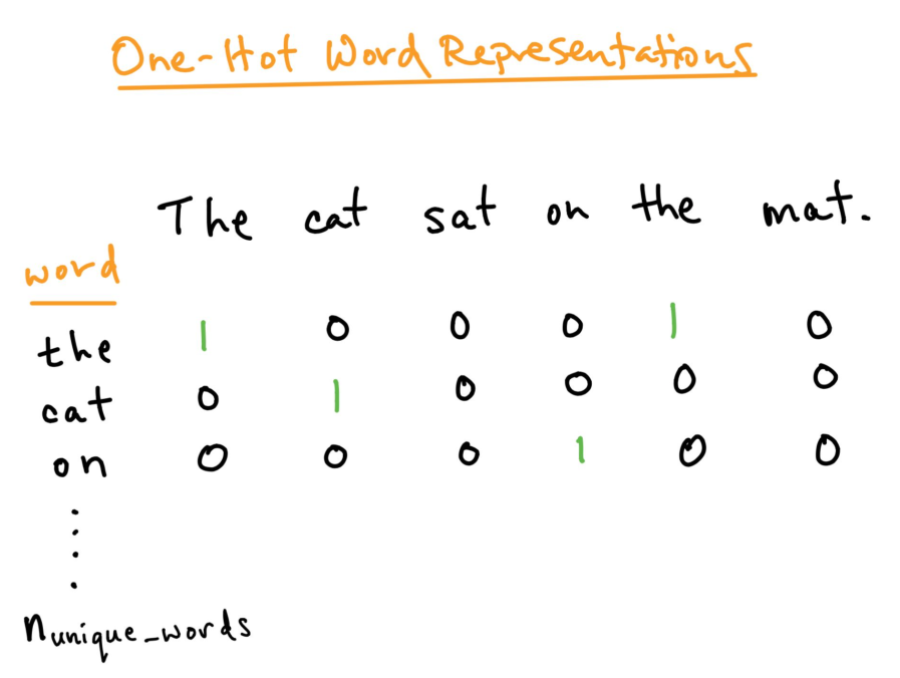 One-Hot Word Representations
The cat sat on the mat.
word
the 1 0 0 0 1 0
cat 0 1 0 0 0 0
on 0 0 0 1 0 0
n unique_words